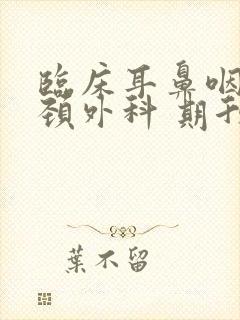 臨床耳鼻咽
頸外科 期刊
葉不留